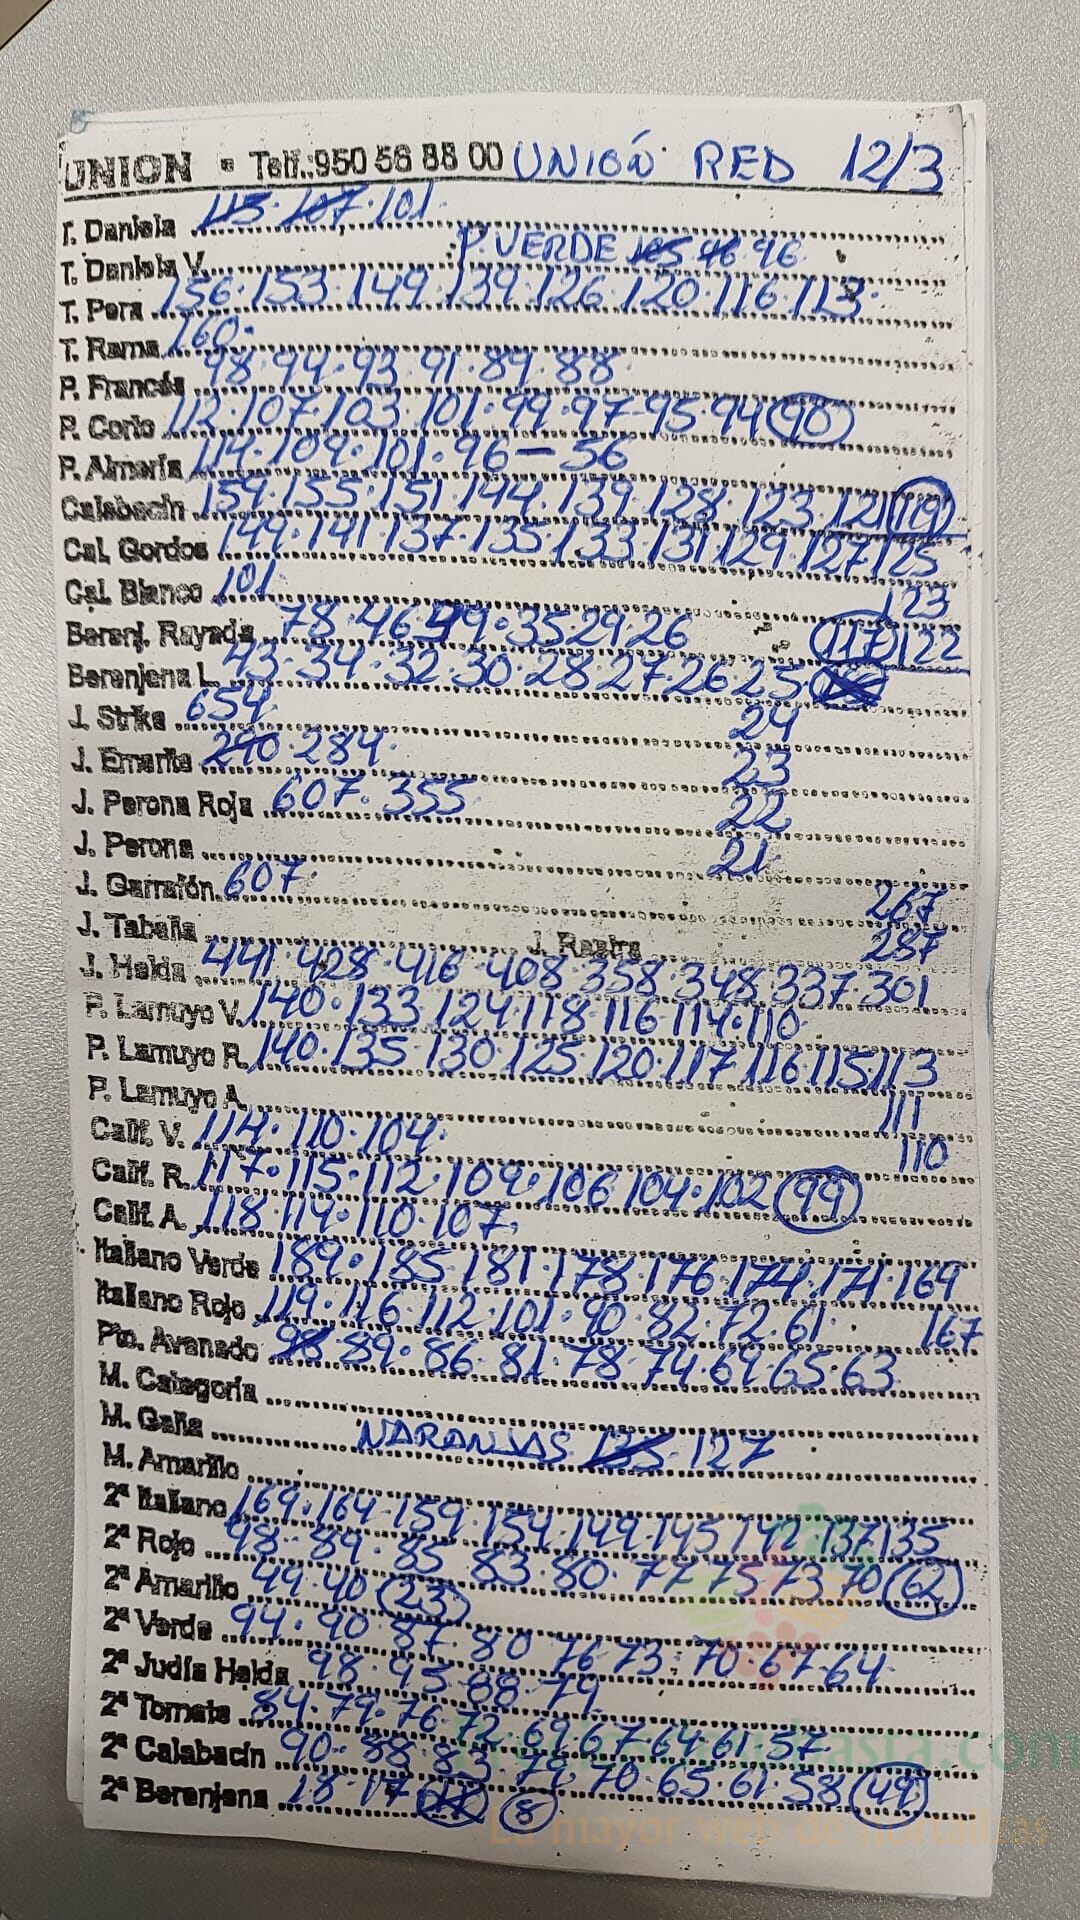 UNION • Telf.:950 56 88 00 UNIÓN RED 12/3
T. Daniela 115 107 101.
T. Daniela V. P. VERDE 105 96
T. Pera 156.153.149.139.126.120.116.113.
T. Rama 160.
P. Francés 98.94.93.91.89.88.
P. Corto 112.107.103.101.99.97.95.94 90
P. Almería 114.109.101.96 — 56
Calabacín 159.155.151.144.139.128.123.121 119
Cal. Gordos 149.141.137.135.133.131 129.127 125
123
Cal. Blanco 101.
Berenj. Rayada 78.46 39.35 29.26 117 122
Berenjena L. 43.34.32.30.28 27.26.25
24
J. Strike 654.
23
J. Emerite 290.284.
22
J. Perona Roja 607.355
21
J. Perona
J. Garrafón 607. 267
J. Tabella J. Rastra 287
J. Helda 441.428.416 408 358 348 337.301
P. Lamuyo V. 140.133.124.118.116.114.110.
P. Lamuyo R. 140.135 130.125.120.117 116.115 113
111
P. Lamuyo A.
110
Calif. V. 114.110.104.
Calif. R. 117.115.112.109.106 104.102 99
Calif. A. 118.114.110.107.
Italiano Verde 189.185.181.178.176.174.171.169
167
Italiano Rojo 119.116.112.101.90.82.72.61.
Pto. Avanado 98 89.86.81.78.74.69.65.63.
M. Categoría
M. Galia NARANJAS 135 127
M. Amarillo
2ª Italiano 169.164.159.154.149.145 142.137 135
2ª Rojo 98.89.85.83.80.77 75 73.70 62
2ª Amarillo 49.40 23
2ª Verde 94.90.87.80 76 73.70.67.64
2ª Judía Helda 98.95.88.79
2ª Tomate 84.79.76.72.69.67.64.61.57
2ª Calabacín 90.88.83.79.70.65.61.58 49
2ª Berenjena 18.17 8
La mayor web de hortalizas